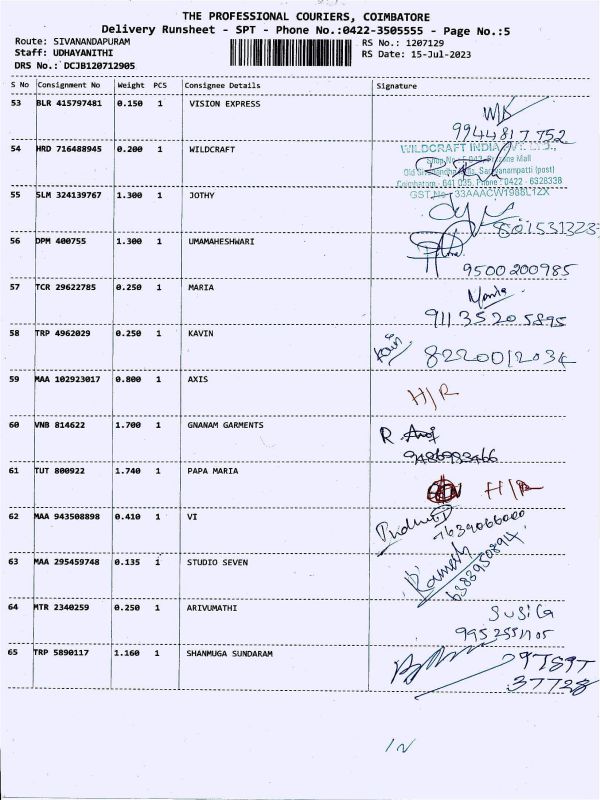 THE PROFESSIONAL COURIERS, COIMBATORE
Delivery Runsheet - SPT - Phone No.:0422-3505555 - Page No.:5
Route: SIVANANDAPURAM RS No.: 1207129
Staff: UDHAYANITHI RS Date: 15-Jul-2023
DRS No.: DCJB120712905
S No Consignment No Weight PCS Consignee Details Signature
53 BLR 415797481 0.150 1 VISION EXPRESS
9944817752
54 HRD 716488945 0.200 1 WILDCRAFT
WILDCRAFT INDIA PVT. LTD.,
Mall
Saravanampatti (post)
Coimbatore - 641 035. Phone: 0422 - 6328338
GST No: 33AAACW1988L1ZX
55 SLM 324139767 1.300 1 JOTHY
56 DPM 400755 1.300 1 UMAMAHESHWARI
9500200985
57 TCR 29622785 0.250 1 MARIA
Maria
91135205895
58 TRP 4962029 0.250 1 KAVIN
8220012034
59 MAA 102923017 0.800 1 AXIS
H/R
60 VNB 814622 1.700 1 GNANAM GARMENTS
R.
9486983466
61 TUT 800922 1.740 1 PAPA MARIA
H/R
62 MAA 943508898 0.410 1 VI
7639066000
63 MAA 295459748 0.135 1 STUDIO SEVEN
Ramesh
6383950894
64 MTR 2340259 0.250 1 ARIVUMATHI
SUSILA
65 TRP 5890117 1.160 1 SHANMUGA SUNDARAM
97897
37728